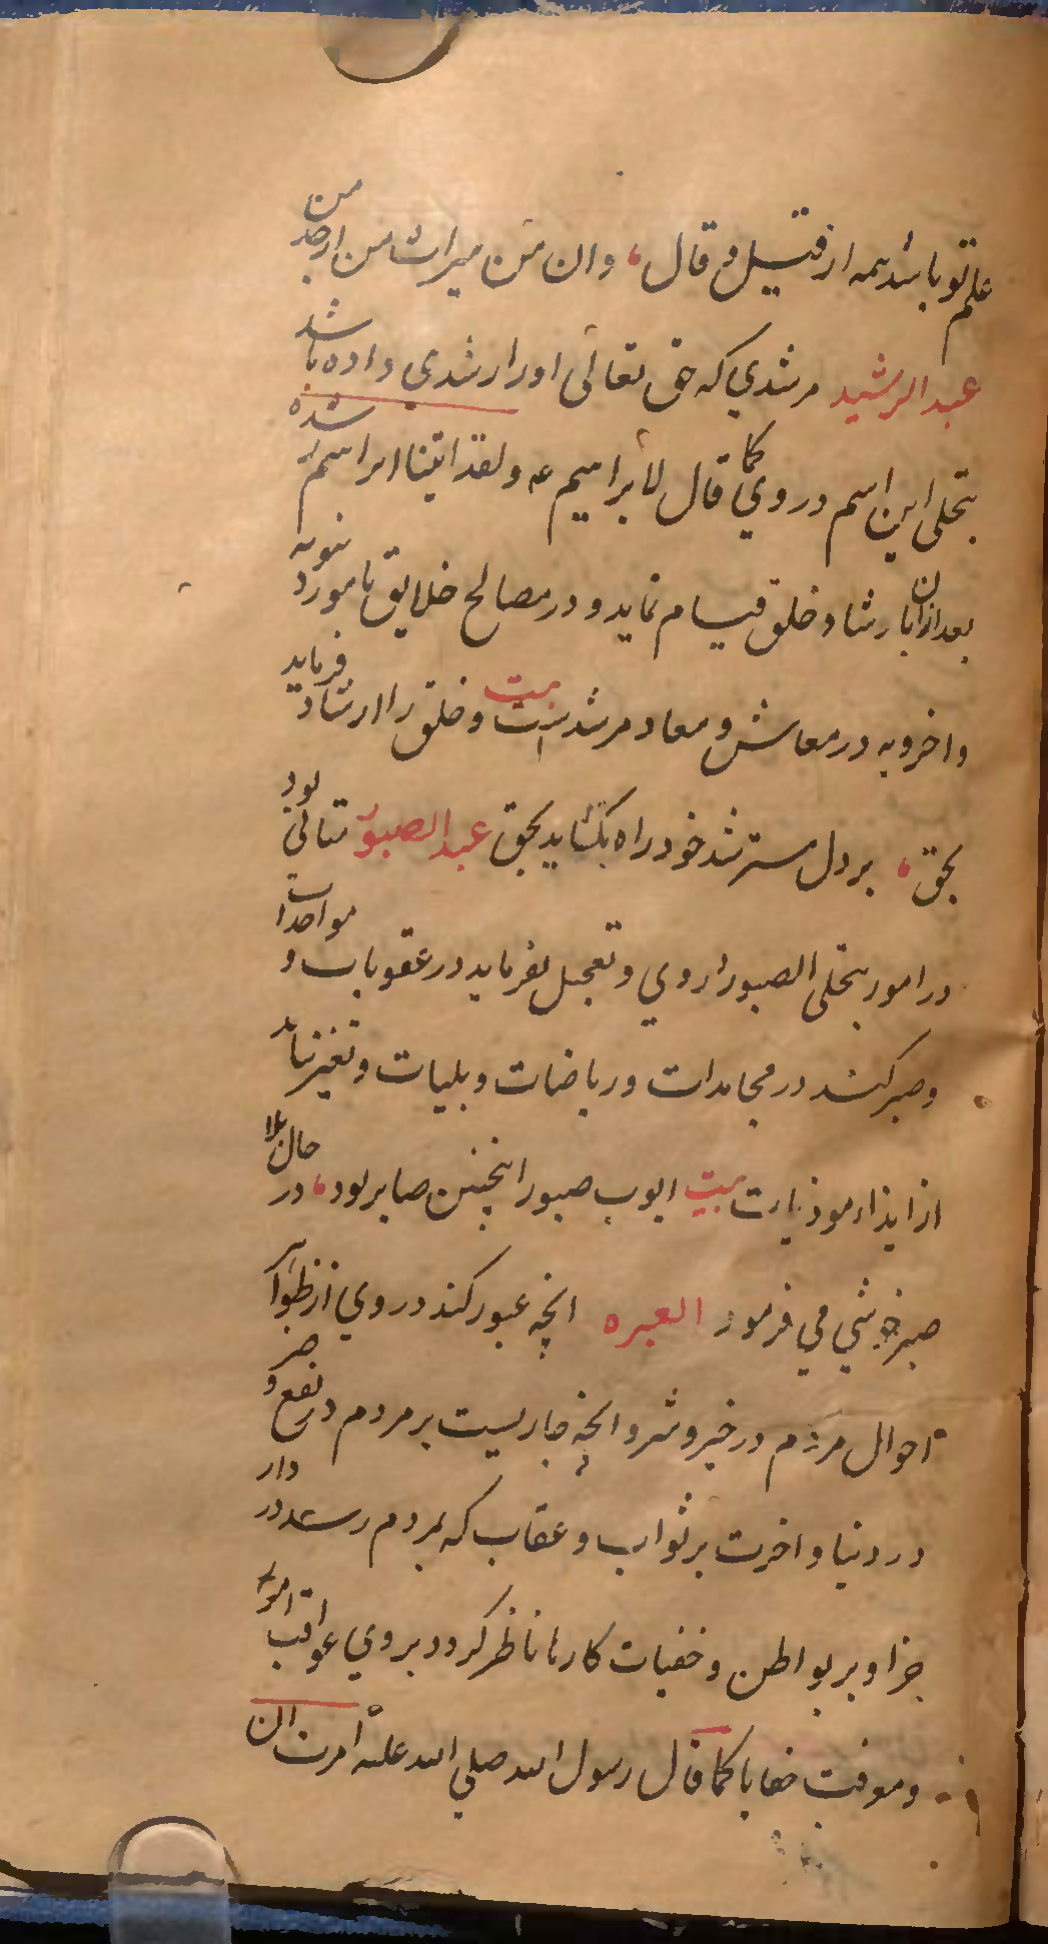 علم تو باشد همه از قیل و قال، وان من میراث من از جد من
عبد الرشید مرشدی که حق تعالی اورا رشدی داده باشد
بتجلی این اسم در وی کما قال لابراهیم عم ولقد اتینا ابراهیم رشده
بعد ازان بارشاد خلق قیام نماید و در مصالح خلایق بامور دنیویه
واخرویه در معاش و معاد مرشدست بیت وخلق را ارشاد فرماید
بحق، بر دل مسترشد خود راه بکشاید بحق عبد الصبور متانی بود
در امور بتجلی الصبور در وی و تعجیل نفرماید در عقوبات و مواخذات
وصبر کند در مجاهدات وریاضات وبلیات و
از ایذاء موذیات بیت ایوب صبور اینچنین صابر بود، در حال بلا
صبر خوشی می فرمود العبره انچه عبور کند در وی از ظواهر
احوال مردم در خیر وشر وانچه جاریست بر مردم در نفع و ضر
در دنیا واخرت بر ثواب وعقاب که بمردم رسد در دار
جزا وبر بواطن وخفیات کارها ناظر کردد بروی عواقب امور
ومعرفت خفایا کما قال رسول الله صلی الله علیه امرت ان